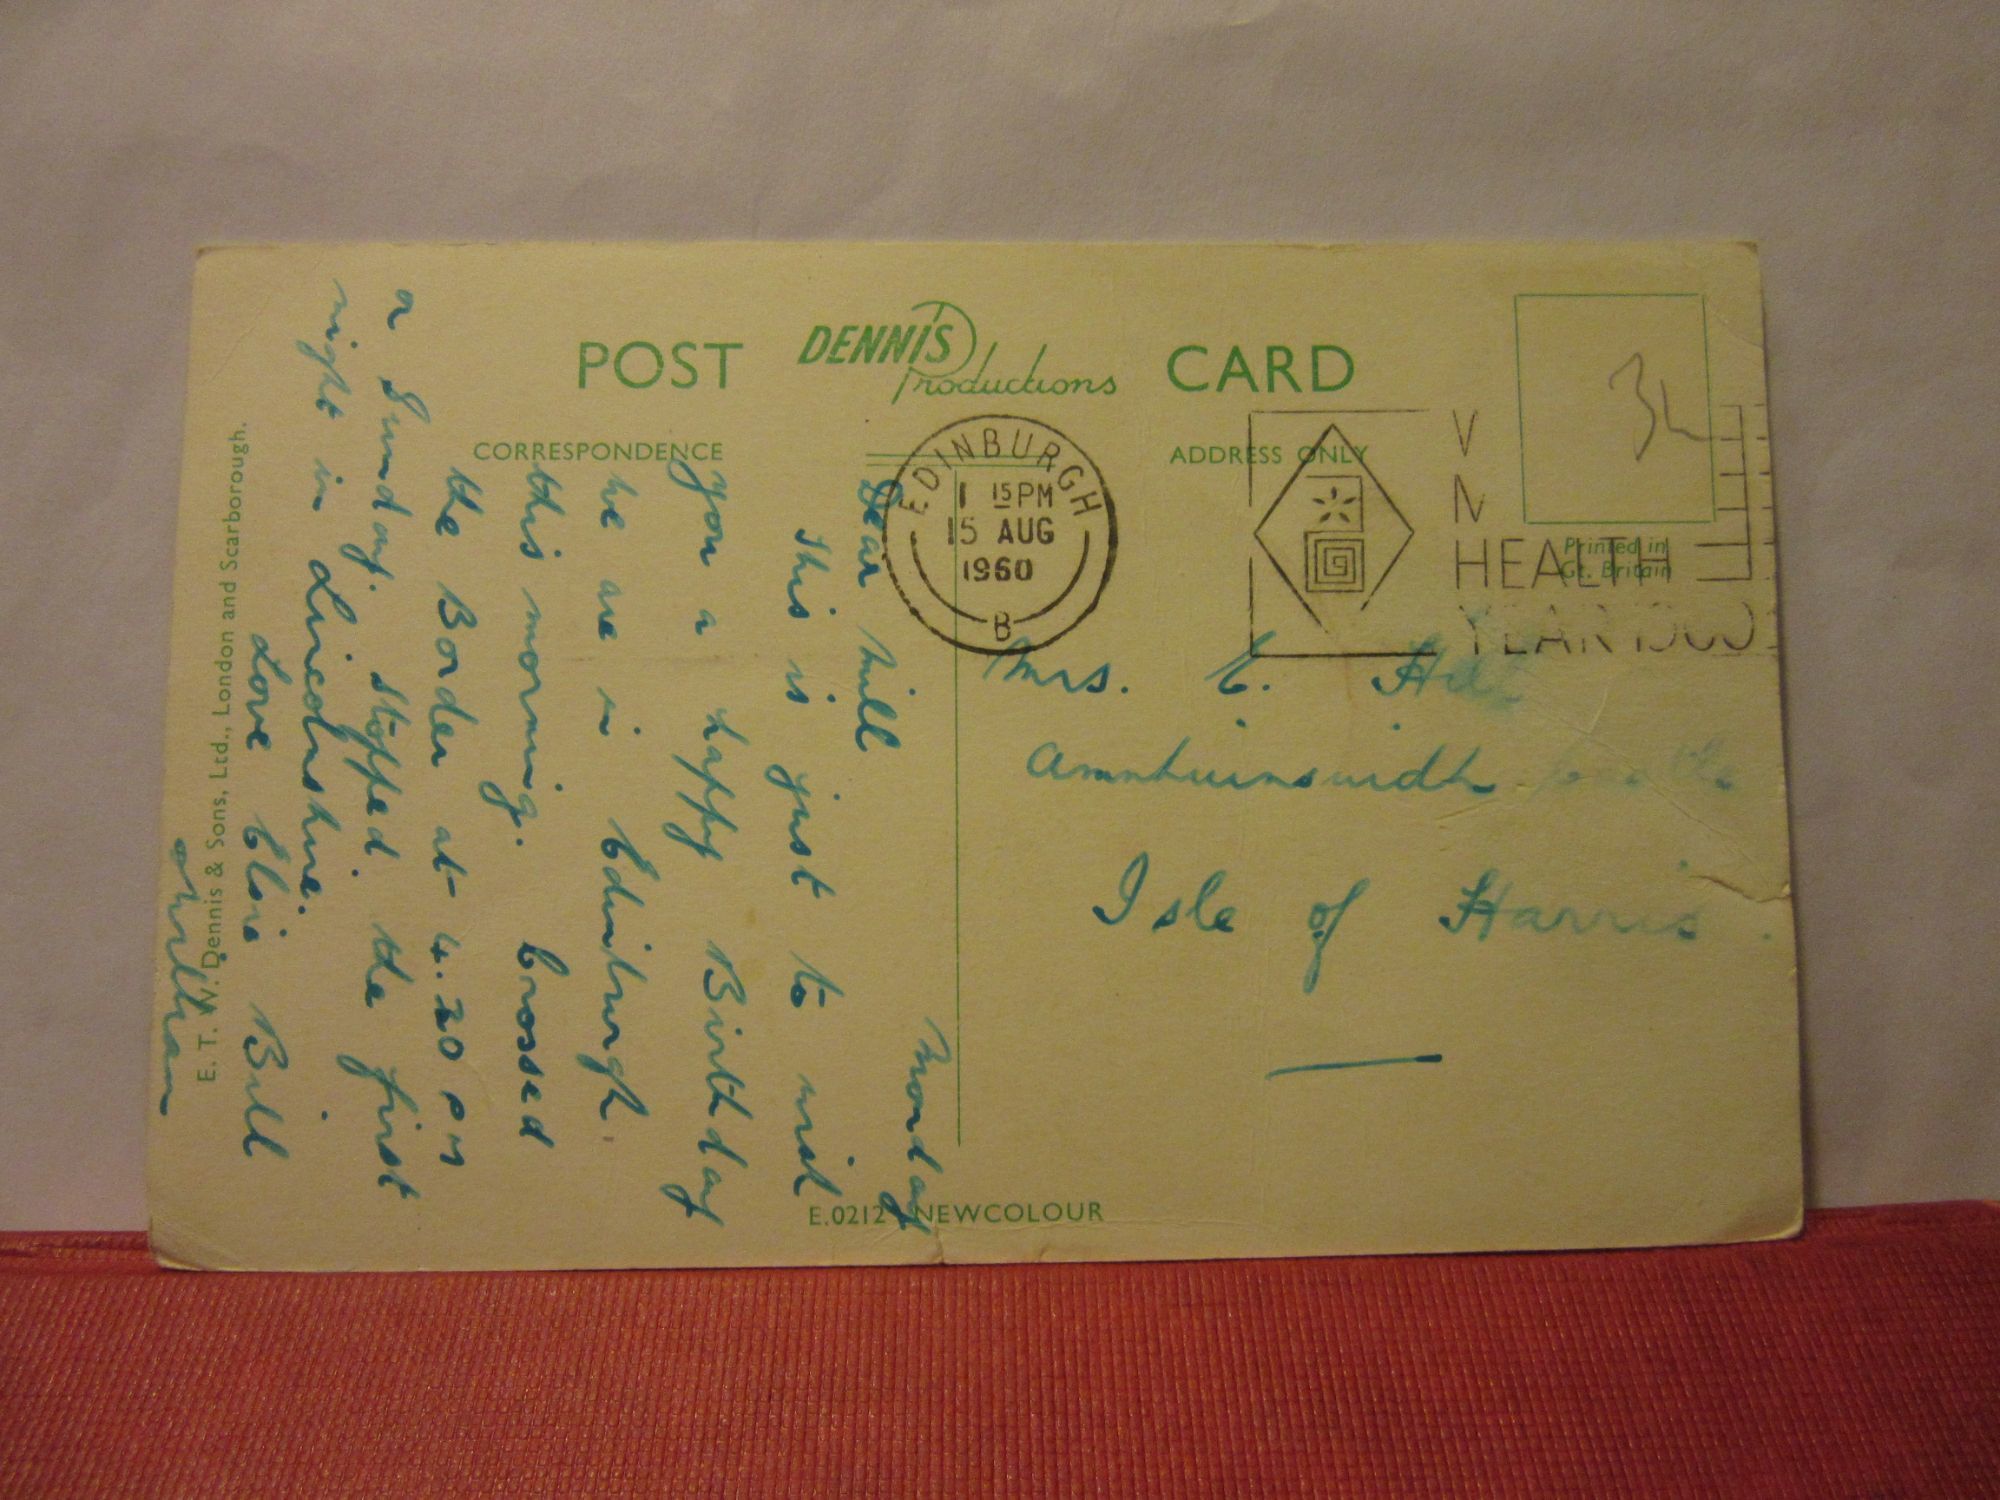 POST DENNIS Productions CARD
CORRESPONDENCE
ADDRESS ONLY
EDINBURGH
1 15PM
15 AUG
1960
B
V
N
HEALTH
YEAR 1960
34
Printed in
Gt. Britain
Monday
Dear Mill
This is just to wish
you a happy Birthday
we are in Edinburgh
this morning. Crossed
the Border at 4.20 pm
on Sunday. Stopped the first
night in Lincolnshire.
Love Elsie Bill
William
Mrs. E. Hill
Amhuinsuidh Castle
Isle of Harris
E. T. W. Dennis & Sons, Ltd., London and Scarborough.
E.0212 NEWCOLOUR